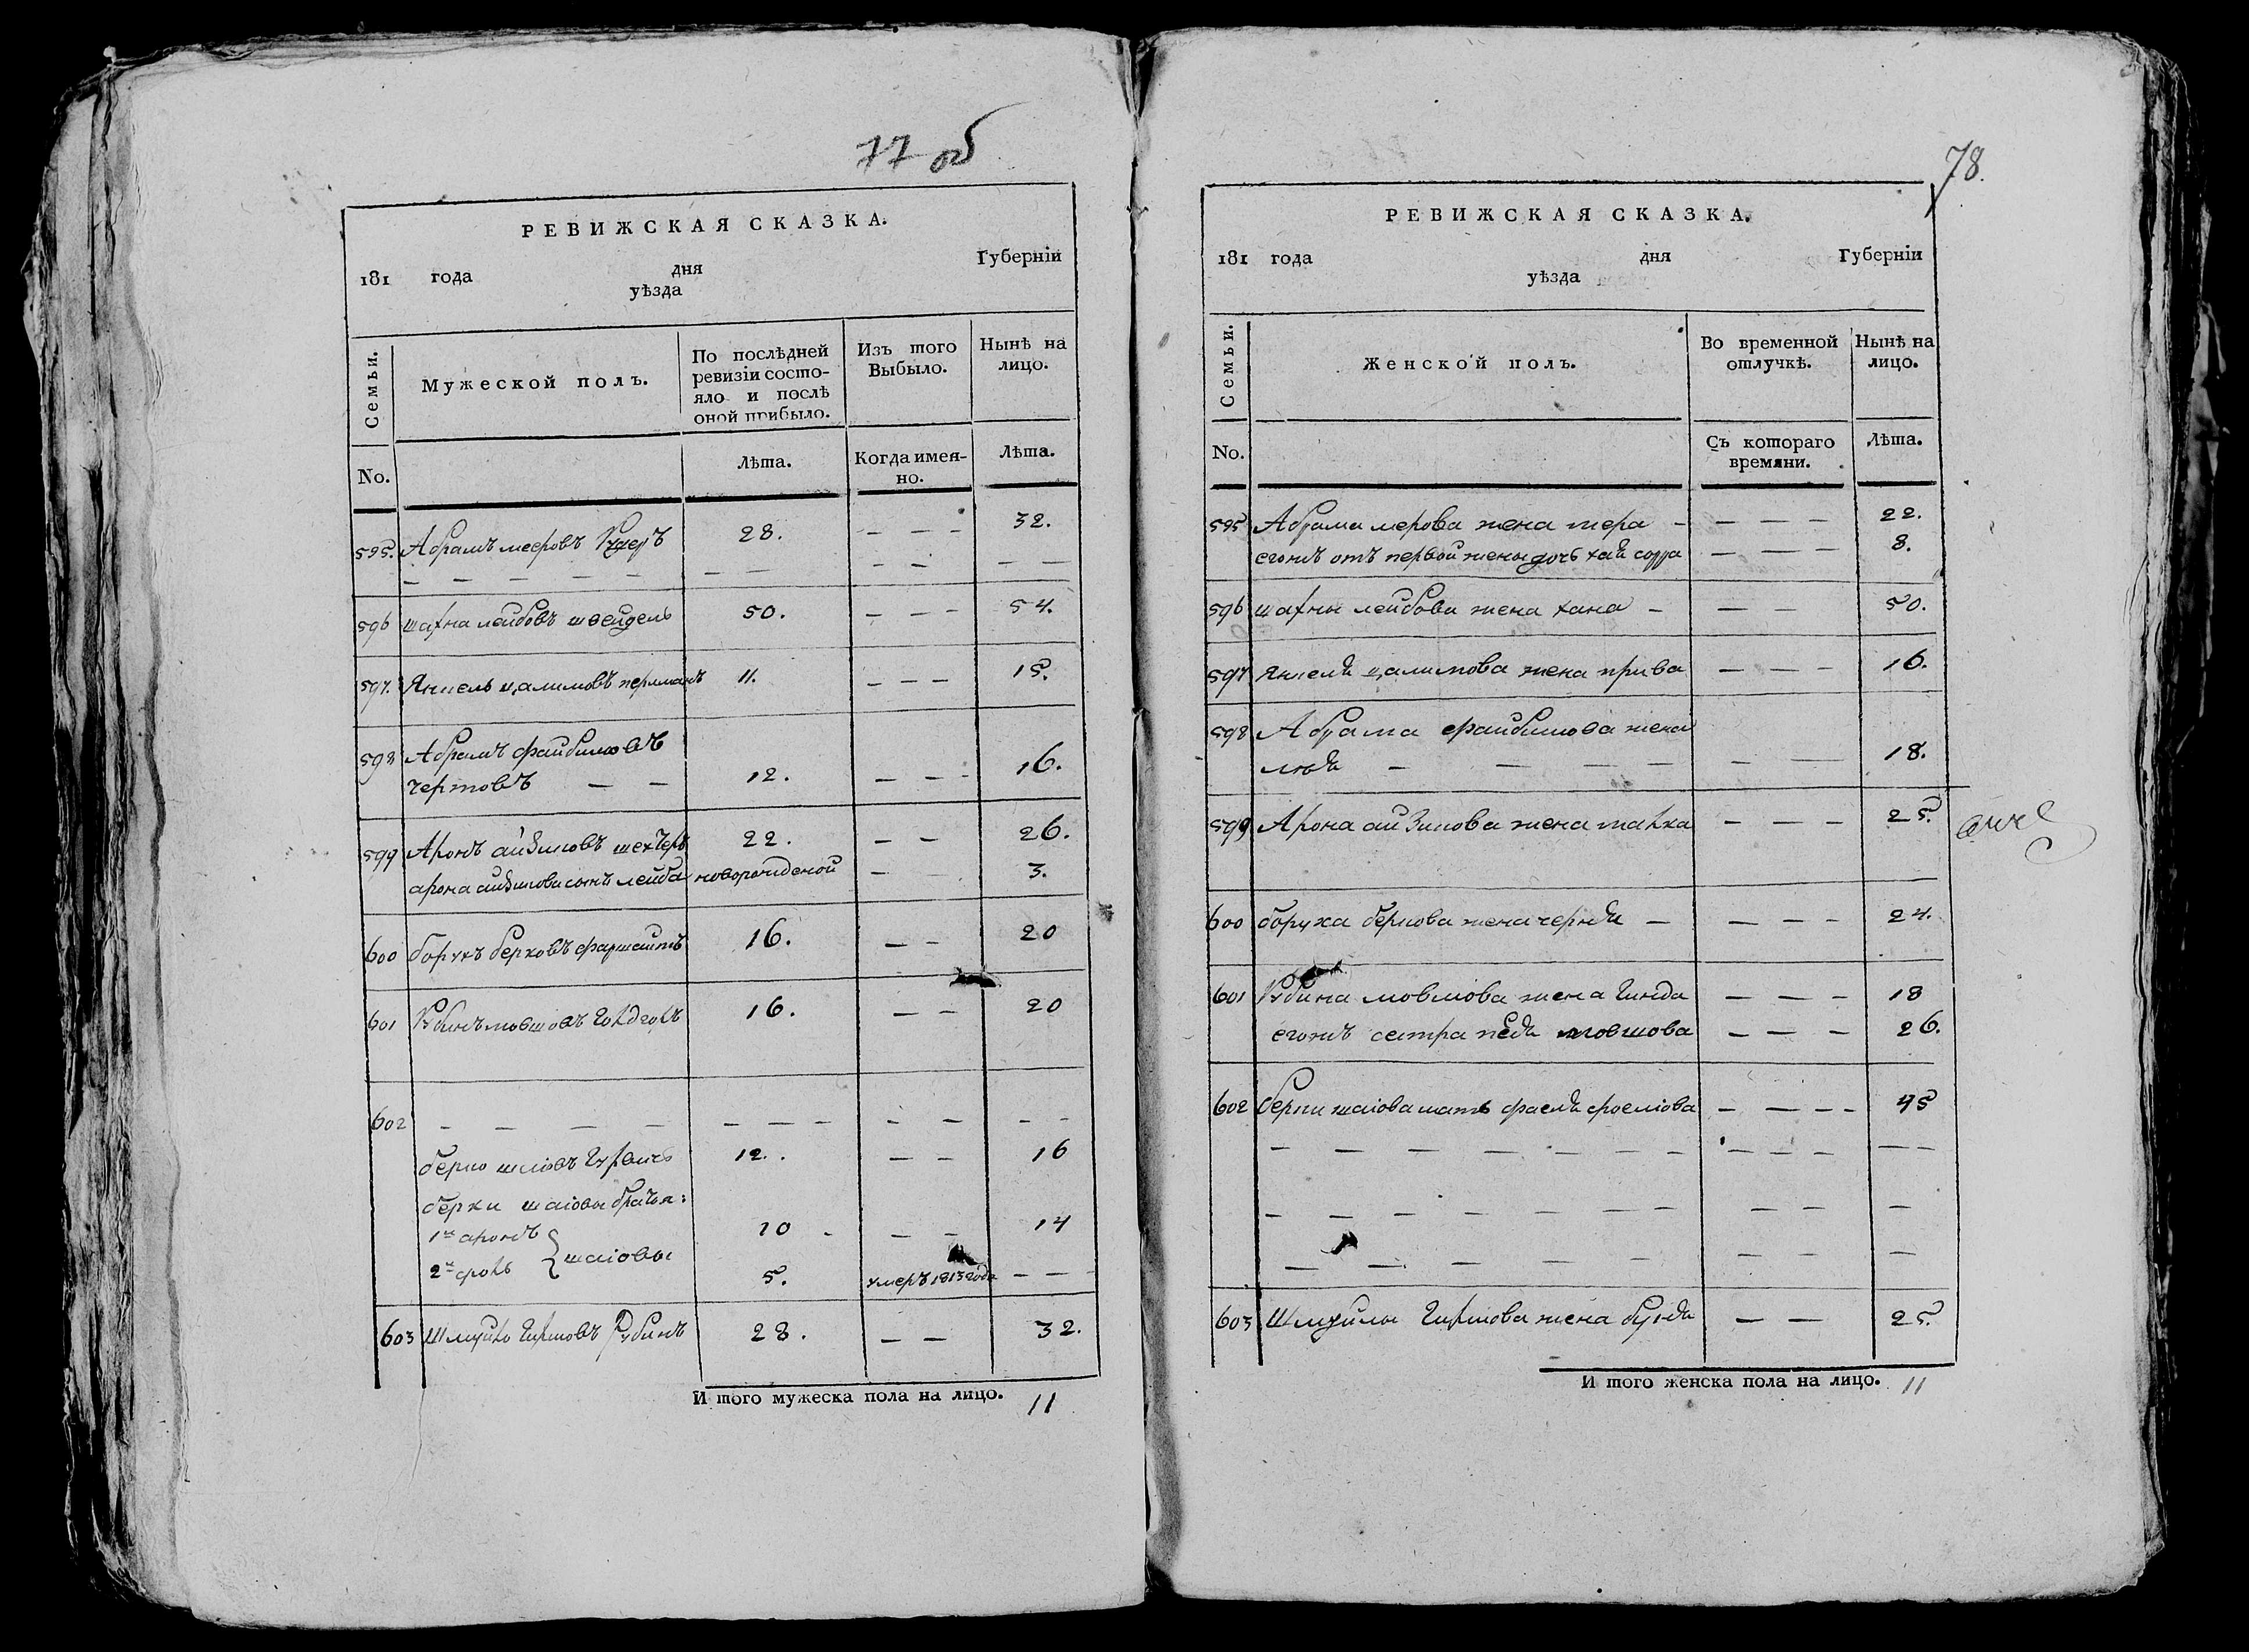 77 об
РЕВИЖСКАЯ СКАЗКА.
181 года дня Губерніи
уѣзда
Семьи.
Мужеской полъ.
По послѣдней ревизіи состо-
яло и послѣ
оной прибыло.
Изъ того
Выбыло.
Нынѣ на
лицо.
No.
Лѣта.
Когда имен-
но.
Лѣта.
595. Абрамъ мееровъ 28. — — — 32.
596 шахна лейбовъ швейдель 50. — — — 54.
597. Янкель цаликовъ перлманъ 11. — — — 15.
598 Абрамъ файбишовъ
чертовъ — — 12. — — — 16.
599 Аронъ айзиковъ шехтеръ 22. — — 26.
арона айзикова сынъ лейба новорожденой — 3.
600 борухъ берковъ 16. — — 20
601 Рубинъ мовшовъ 16. — — 20
602 — — — — — — — — — — —
берко шаіовъ Гурвичъ 12. — — 16
берки шаіовы братья:
1й аронъ 10 — — 14
2й шаіовы 5. умеръ 1813 года — — —
603 Шмуйло Гиршовъ Рубинъ 28. — — 32.
И того мужеска пола на лицо. 11
78.
РЕВИЖСКАЯ СКАЗКА.
181 года дня Губерніи
уѣзда
Семьи.
Женской полъ.
Во временной
отлучкѣ.
Нынѣ на
лицо.
No.
Съ котораго
времяни.
Лѣта.
595 Абрама мерова жена — — — — 22.
егожъ отъ первой жены дочь хая — — — 8.
596 шахны лейбова жена хана — — — 50.
597 Янкеля цаликова жена — — — 16.
598 Абрама файбишова жена
— — — — — — 18.
599 Арона айзикова жена — — — 25.
600 боруха беркова жена черня — — — — 24.
601 Рубина мовшова жена Гинда — — — 18
егожъ сестра мовшова — — — 26.
602 берки шаіова мать — — — — 45
— — — — — — — — — — — — —
— — — — — — — — — —
— — — — — — —
603 Шмуйлы Гиршова жена — — 25.
И того женска пола на лицо. 11